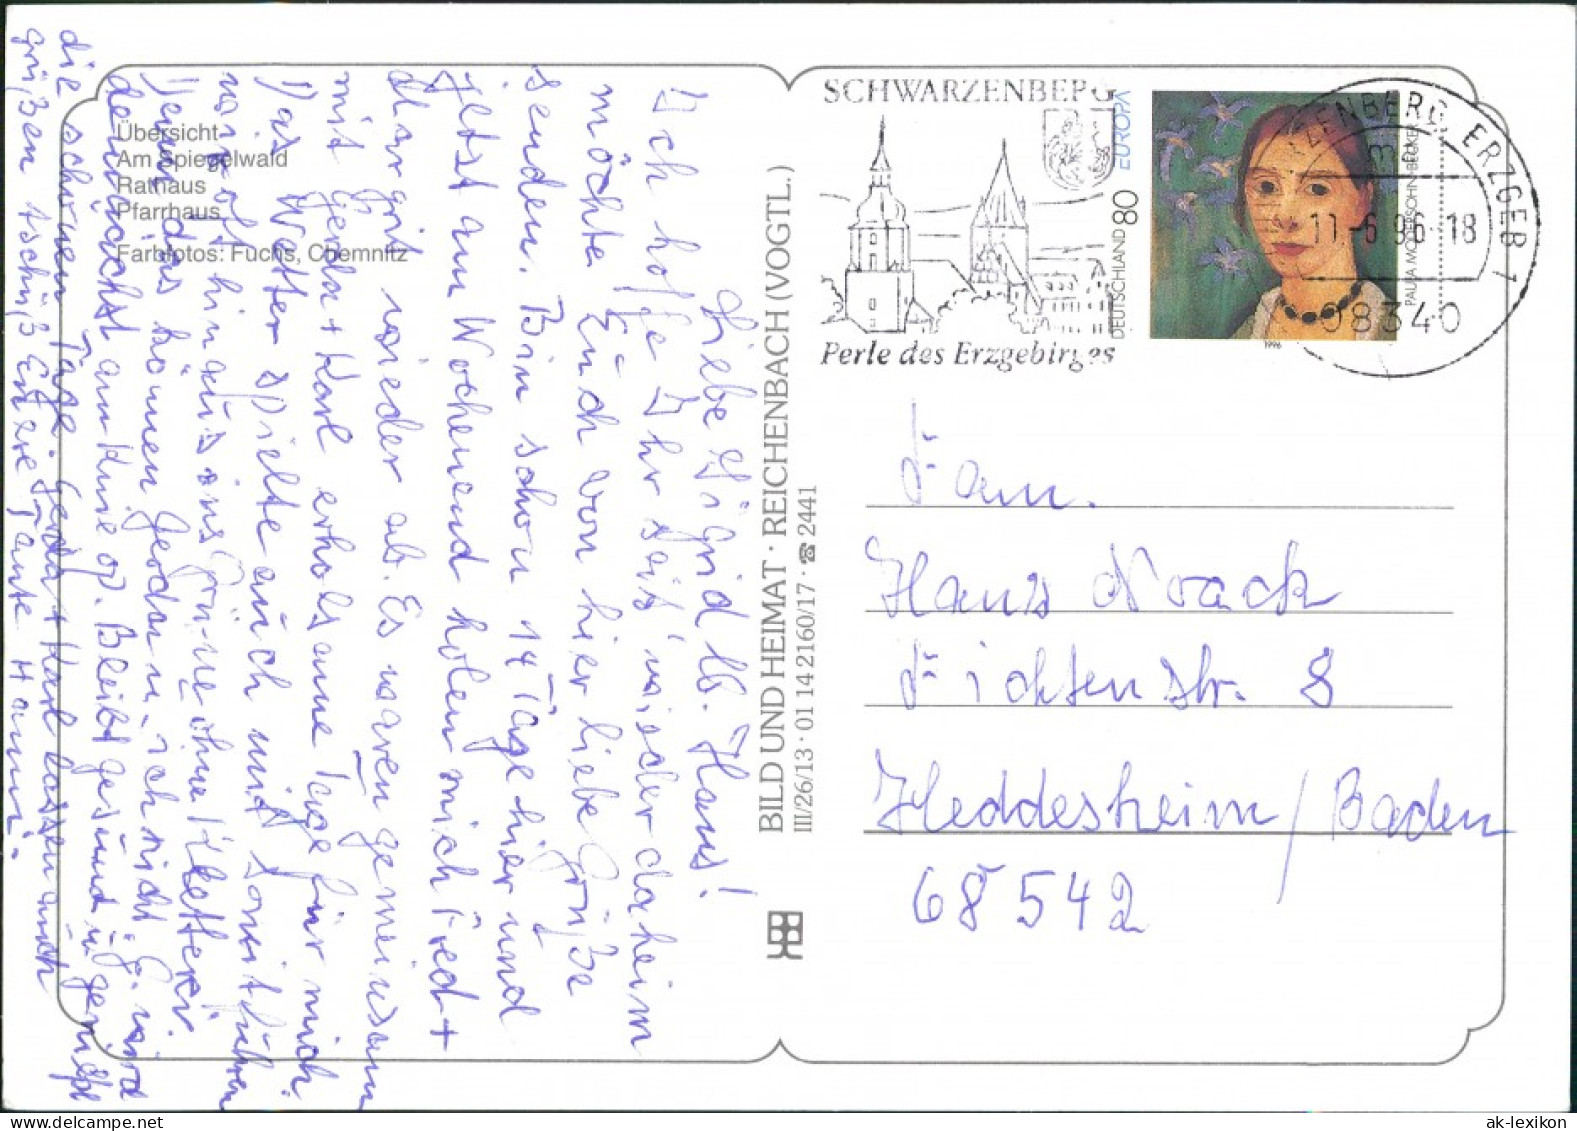 Übersicht
Am Spiegelwald
Rathaus
Pfarrhaus
Farbfotos: Fuchs, Chemnitz
Liebe Sigrid lb. Hans!
Ich hoffe Ihr seit wieder daheim
möchte Euch von hier liebe Grüße
senden. Bin schon 14 Tage hier und
jetzt am Wochenend holen mich Fred +
Margrit wieder ab. Es waren gemeinsam
mit Gerda + Karl erholsame Tage für mich.
Das Wetter spielte auch mit somit fuhren
wir oft hinaus ins Grüne ohne Kletterr.
denn das können Gerda u. ich nicht. G. wird
demnächst am Knie op. Bleibt gesund u. genießt
die schönen Tage Gerda + Karl lassen auch
grüßen tschüß Eure Tante Hanni.
BILD UND HEIMAT · REICHENBACH (VOGTL.)
III/26/13 · 01 14 2160/17 · ☎ 2441
SCHWARZENBERG
Perle des Erzgebirges
EUROPA
DEUTSCHLAND 80
PAULA MODERSOHN-BECKER
1996
ZENBERG, ERZGEB 1
11.-6.96-18
08340
Fam.
Hans Noack
Fichtenstr. 8
Heddesheim / Baden
68542
ak-lexikon.com